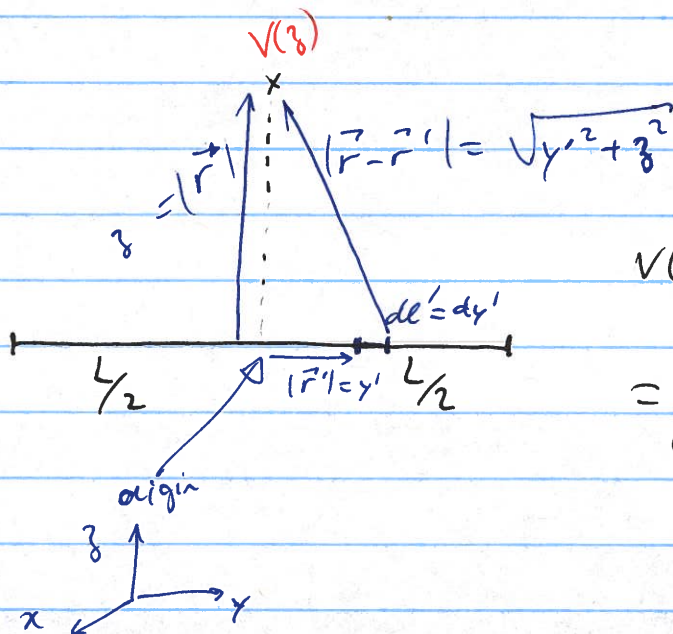 V(z)
x
z = |r⃗|
|r⃗ - r⃗'| = √y'² + z²
V(
dl' = dy'
L/2
|r⃗'| = y'
L/2
=
origin
z
x
y